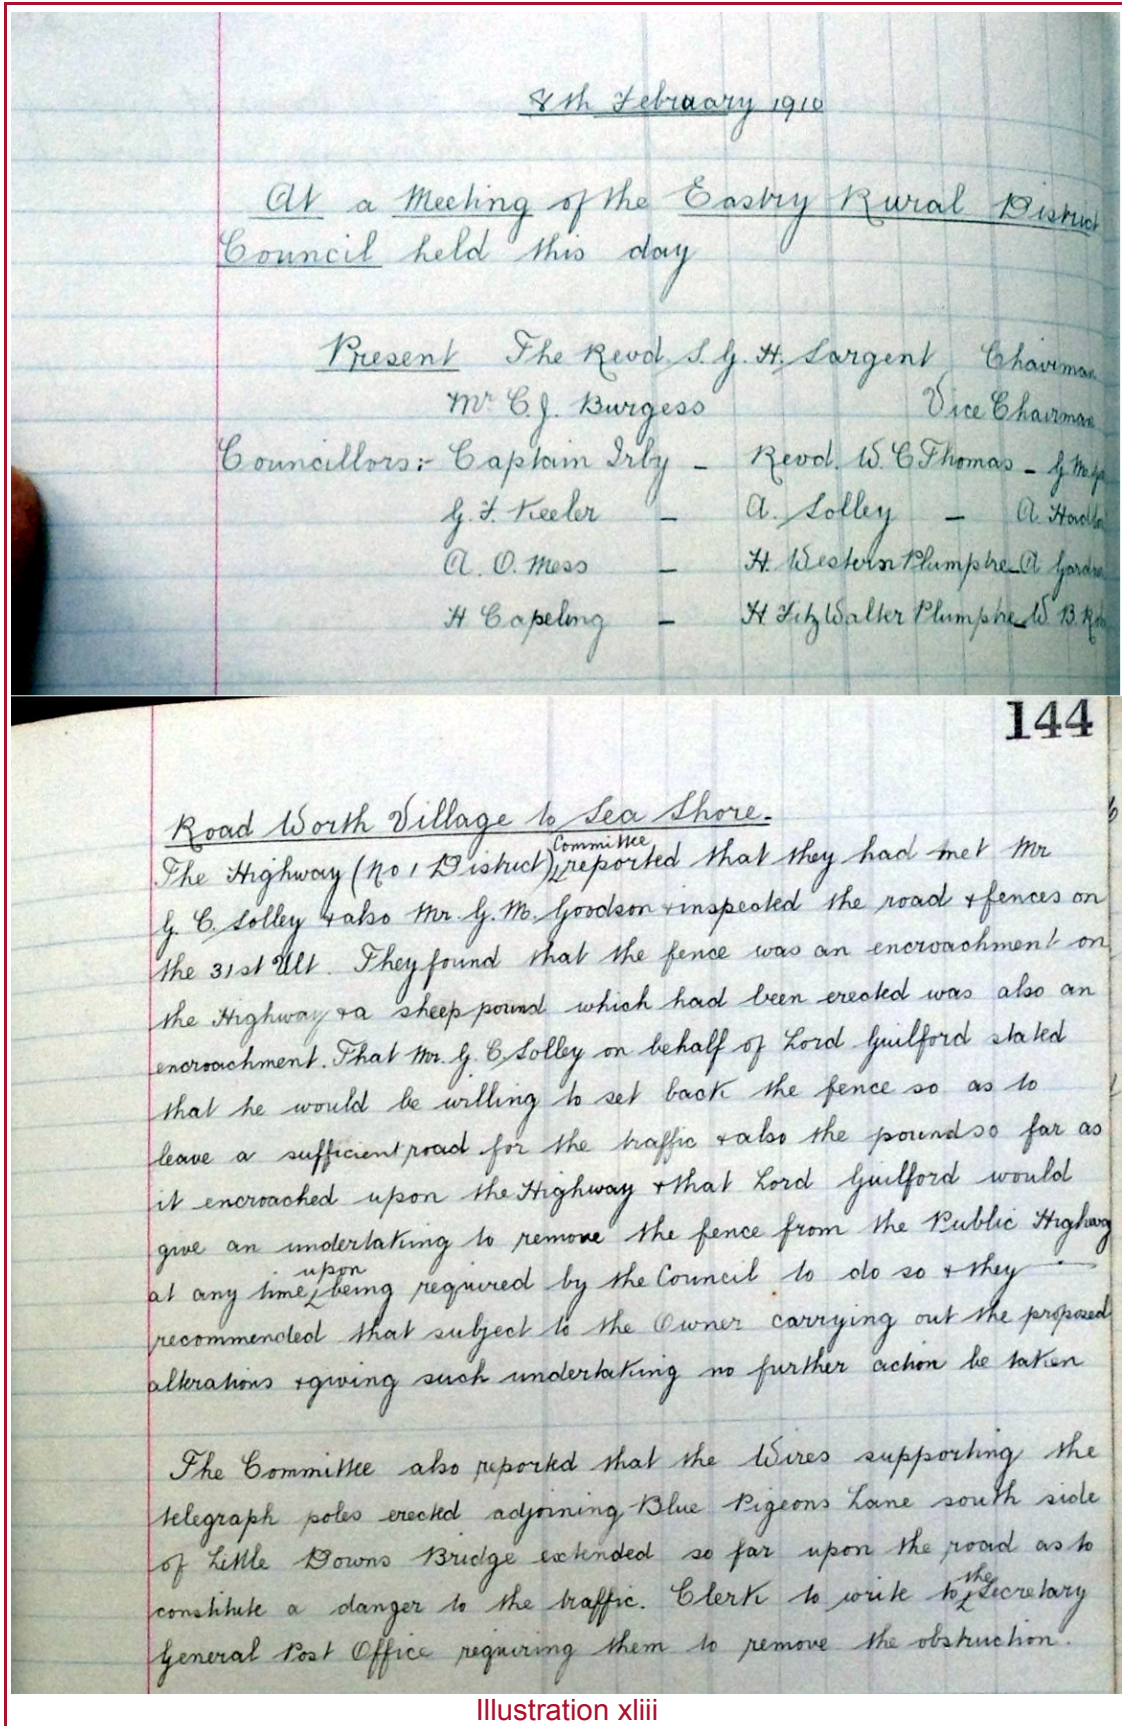 8th February 1910
At a Meeting of the Eastry Rural District
Council held this day
Present The Revd. S. G. H. Sargent Chairman
Mr C. J. Burgess Vice Chairman
Councillors:- Captain Irby - Revd. W. C Thomas - G M
G. F. Keeler - A. Solley - A.
A. O. Mess - H. Western Plumptre - A
H Capeling - H FitzWalter Plumptre - W. B.
144
Road Worth Village to Sea Shore.
The Highway (No 1 District) Committee reported that they had met Mr
G. C. Solley & also Mr. G. M. Goodson & inspected the road & fences on
the 31st Ult. They found that the fence was an encroachment on
the Highway & a sheep pound which had been erected was also an
encroachment. That Mr. G. C. Solley on behalf of Lord Guilford stated
that he would be willing to set back the fence so as to
leave a sufficient road for the traffic & also the pound so far as
it encroached upon the Highway & that Lord Guilford would
give an undertaking to remove the fence from the Public Highway
at any time upon being required by the Council to do so & they
recommended that subject to the Owner carrying out the proposed
alterations & giving such undertaking no further action be taken
The Committee also reported that the Wires supporting the
telegraph poles erected adjoining Blue Pigeons Lane south side
of Little Downs Bridge extended so far upon the road as to
constitute a danger to the traffic. Clerk to write to the Secretary
General Post Office requiring them to remove the obstruction.
Illustration xliii